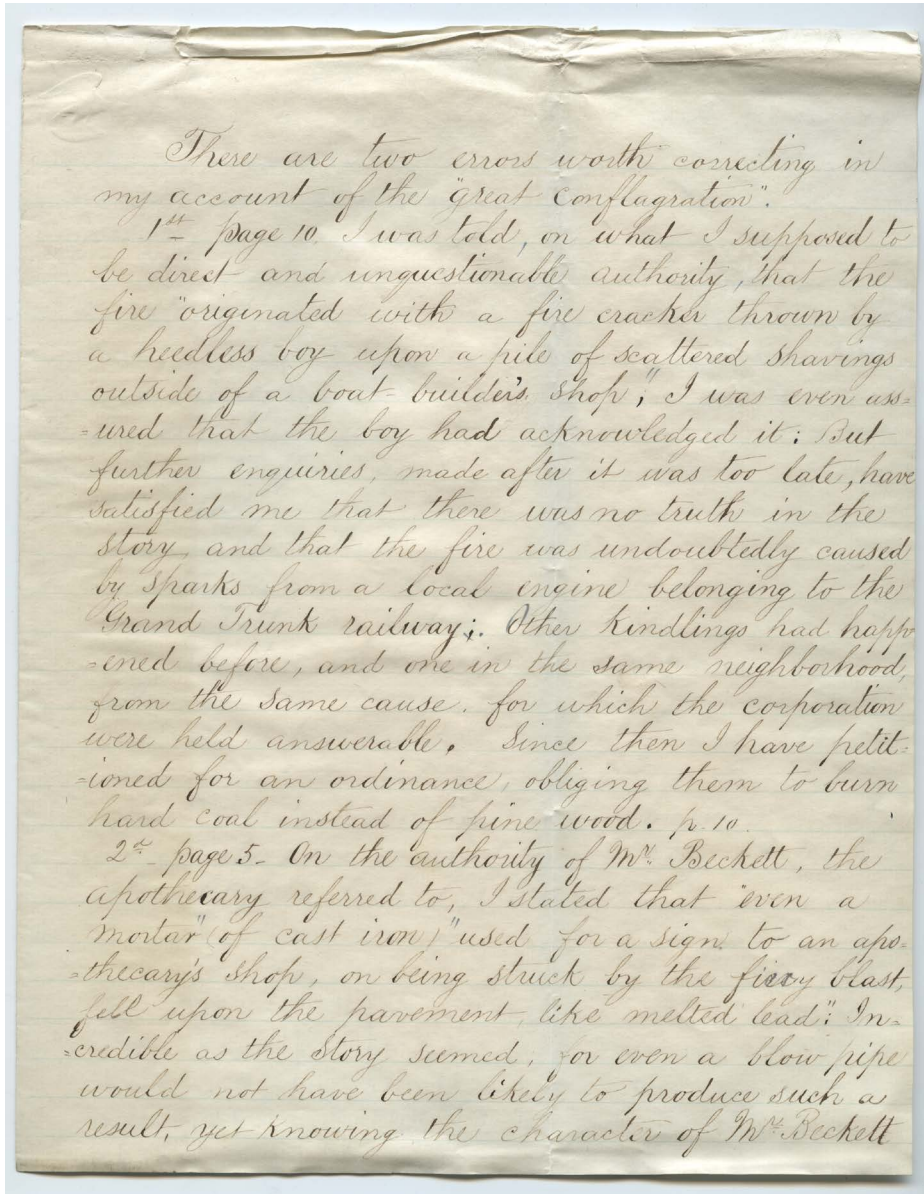 There are two errors worth correcting in
my account of the "great conflagration".
1st page 10. I was told, on what I supposed to
be direct and unquestionable authority, that the
fire "originated with a fire cracker thrown by
a heedless boy upon a pile of scattered shavings
outside of a boat-builder's shop"; I was even ass=
=ured that the boy had acknowledged it: But
further enquiries, made after it was too late, have
satisfied me that there was no truth in the
story, and that the fire was undoubtedly caused
by sparks from a local engine belonging to the
Grand Trunk railway;. Other kindlings had happ
=ened before, and one in the same neighborhood,
from the same cause. for which the corporation
were held answerable. Since then I have petit=
=ioned for an ordinance, obliging them to burn
hard coal instead of pine wood. p. 10.
2d page 5- On the authority of Mr. Beckett, the
apothecary referred to, I stated that "even a
mortar" (of cast iron) "used for a sign to an apo=
=thecary's shop, on being struck by the fiery blast,
fell upon the pavement, like melted lead": In=
=credible as the story seemed, for even a blow pipe
would not have been likely to produce such a
result, yet knowing the character of Mr. Beckett